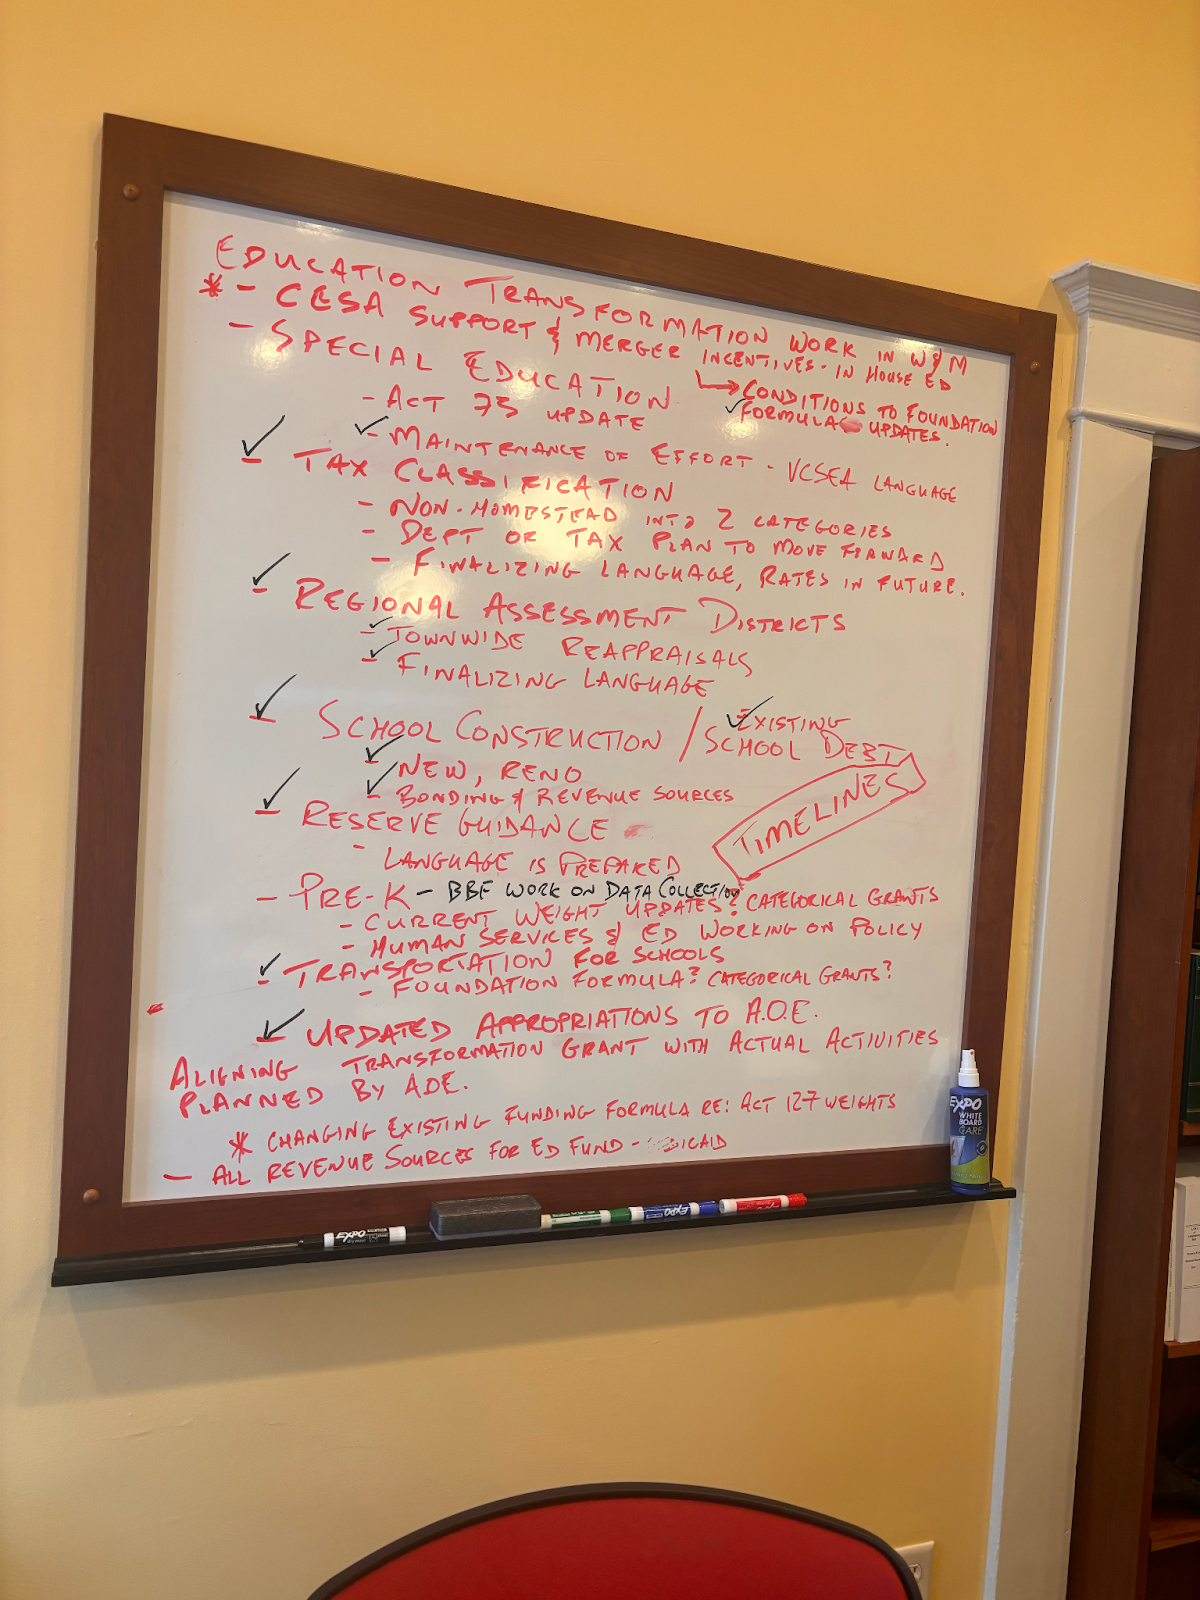 EDUCATION TRANSFORMATION WORK IN W&M
* - CESA SUPPORT & MERGER INCENTIVES - IN HOUSE ED
→ CONDITIONS TO FOUNDATION
✓ FORMULA UPDATES.
- SPECIAL EDUCATION
- ACT 73 UPDATE
✓ - MAINTENANCE OF EFFORT - VCSEA LANGUAGE
✓ - TAX CLASSIFICATION
- NON-HOMESTEAD INTO 2 CATEGORIES
- DEPT OF TAX PLAN TO MOVE FORWARD
- FINALIZING LANGUAGE, RATES IN FUTURE.
✓ - REGIONAL ASSESSMENT DISTRICTS
✓ - TOWNWIDE REAPPRAISALS
✓ - FINALIZING LANGUAGE
✓ - SCHOOL CONSTRUCTION / ✓ EXISTING
SCHOOL DEBT
✓ - NEW, RENO
✓ - BONDING & REVENUE SOURCES
TIMELINES
✓ - RESERVE GUIDANCE
- LANGUAGE IS PREPARED
- PRE-K - BBF WORK ON DATA COLLECTION
- CURRENT WEIGHT UPDATES? CATEGORICAL GRANTS
- HUMAN SERVICES & ED WORKING ON POLICY
✓ - TRANSPORTATION FOR SCHOOLS
- FOUNDATION FORMULA? CATEGORICAL GRANTS?
✓ - UPDATED APPROPRIATIONS TO A.O.E.
ALIGNING TRANSFORMATION GRANT WITH ACTUAL ACTIVITIES
PLANNED BY AOE.
* CHANGING EXISTING FUNDING FORMULA RE: ACT 127 WEIGHTS
- ALL REVENUE SOURCES FOR ED FUND -
EXPO
WHITE
BOARD
CARE
EXPO
EXPO